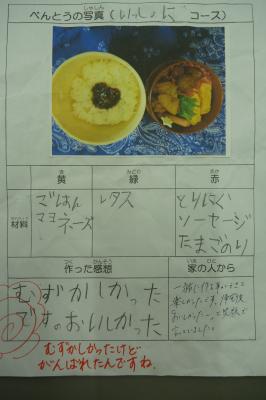 べんとうの写真(いっしょに コース)
しゃしん
き
みどり
あか
黄
緑
赤
ざいりょう
材料
ごはん
マヨネーズ
レタス
とりにく
ソーセージ
たまごのり
つく
かんそう
作った感想
いえ
ひと
家の人から
むずかしかった
です。おいしかった
一緒に作る事ができて
楽しかったです。
おいしかった
と笑顔で
言っていました。
むずかしかったけど
がんばれたんですね。